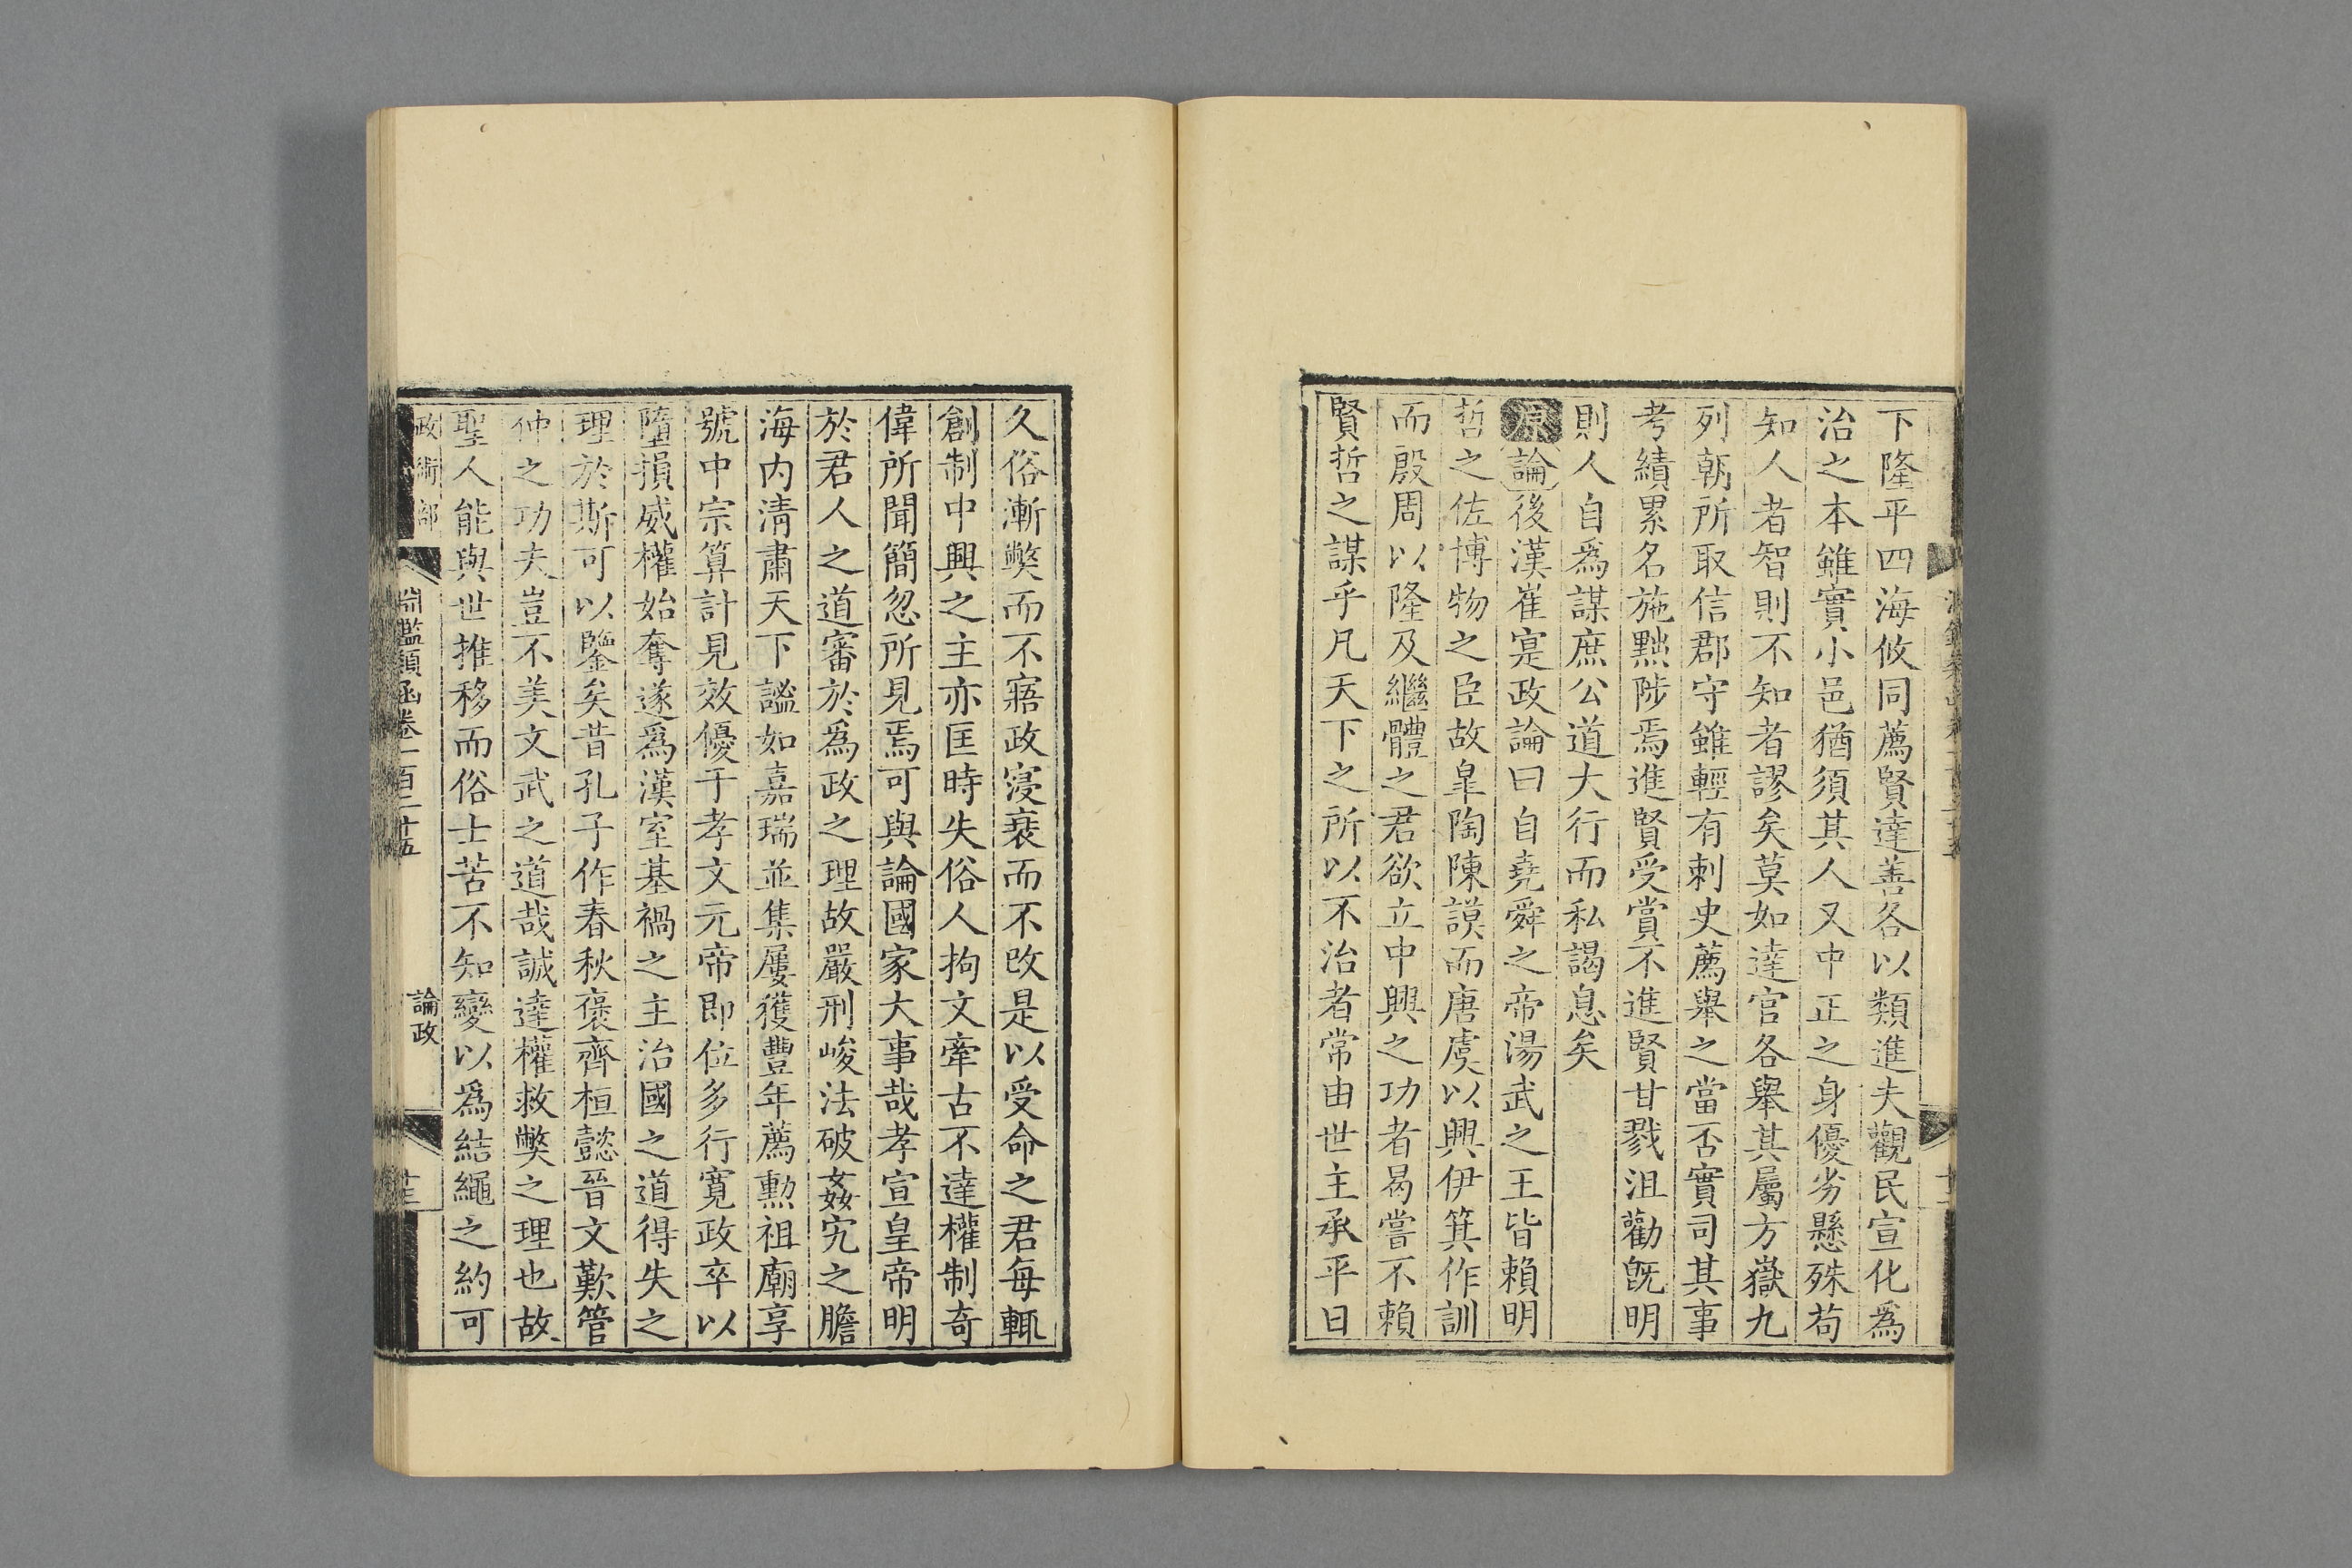 下隆平四海攸同薦賢達善各以類進夫觀民宣化爲
治之本雖實小邑猶須其人又中正之身優劣懸殊苟
知人者智則不知者謬矣莫如達官各舉其屬方嶽九
列朝所取信郡守雖輕有刺史薦舉之當否實司其事
考績累名施黜陟焉進賢受賞不進賢甘戮沮勸旣明
則人自爲謀庶公道大行而私謁息矣
原論後漢崔寔政論曰自堯舜之帝湯武之王皆賴明
哲之佐博物之臣故臯陶陳謨而唐虞以興伊箕作訓
而殷周以隆及繼體之君欲立中興之功者曷嘗不賴
賢哲之謀乎凡天下之所以不治者常由世主承平日
久俗漸弊而不寤政寖衰而不改是以受命之君每輒
創制中興之主亦匡時失俗人拘文牽古不達權制奇
偉所聞簡忽所見焉可與論國家大事哉孝宣皇帝明
於君人之道審於爲政之理故嚴刑峻法破姦宄之膽
海内清肅天下謐如嘉瑞並集屢獲豐年薦勲祖廟享
號中宗算計見效優于孝文元帝即位多行寬政卒以
墮損威權始奪遂爲漢室基禍之主治國之道得失之
理於斯可以鑒矣昔孔子作春秋襃齊桓懿晉文歎管
仲之功夫豈不美文武之道哉誠達權救弊之理也故
聖人能與世推移而俗士苦不知變以爲結繩之約可
政術部
淵鑑類函卷一百二十五
論政
十三